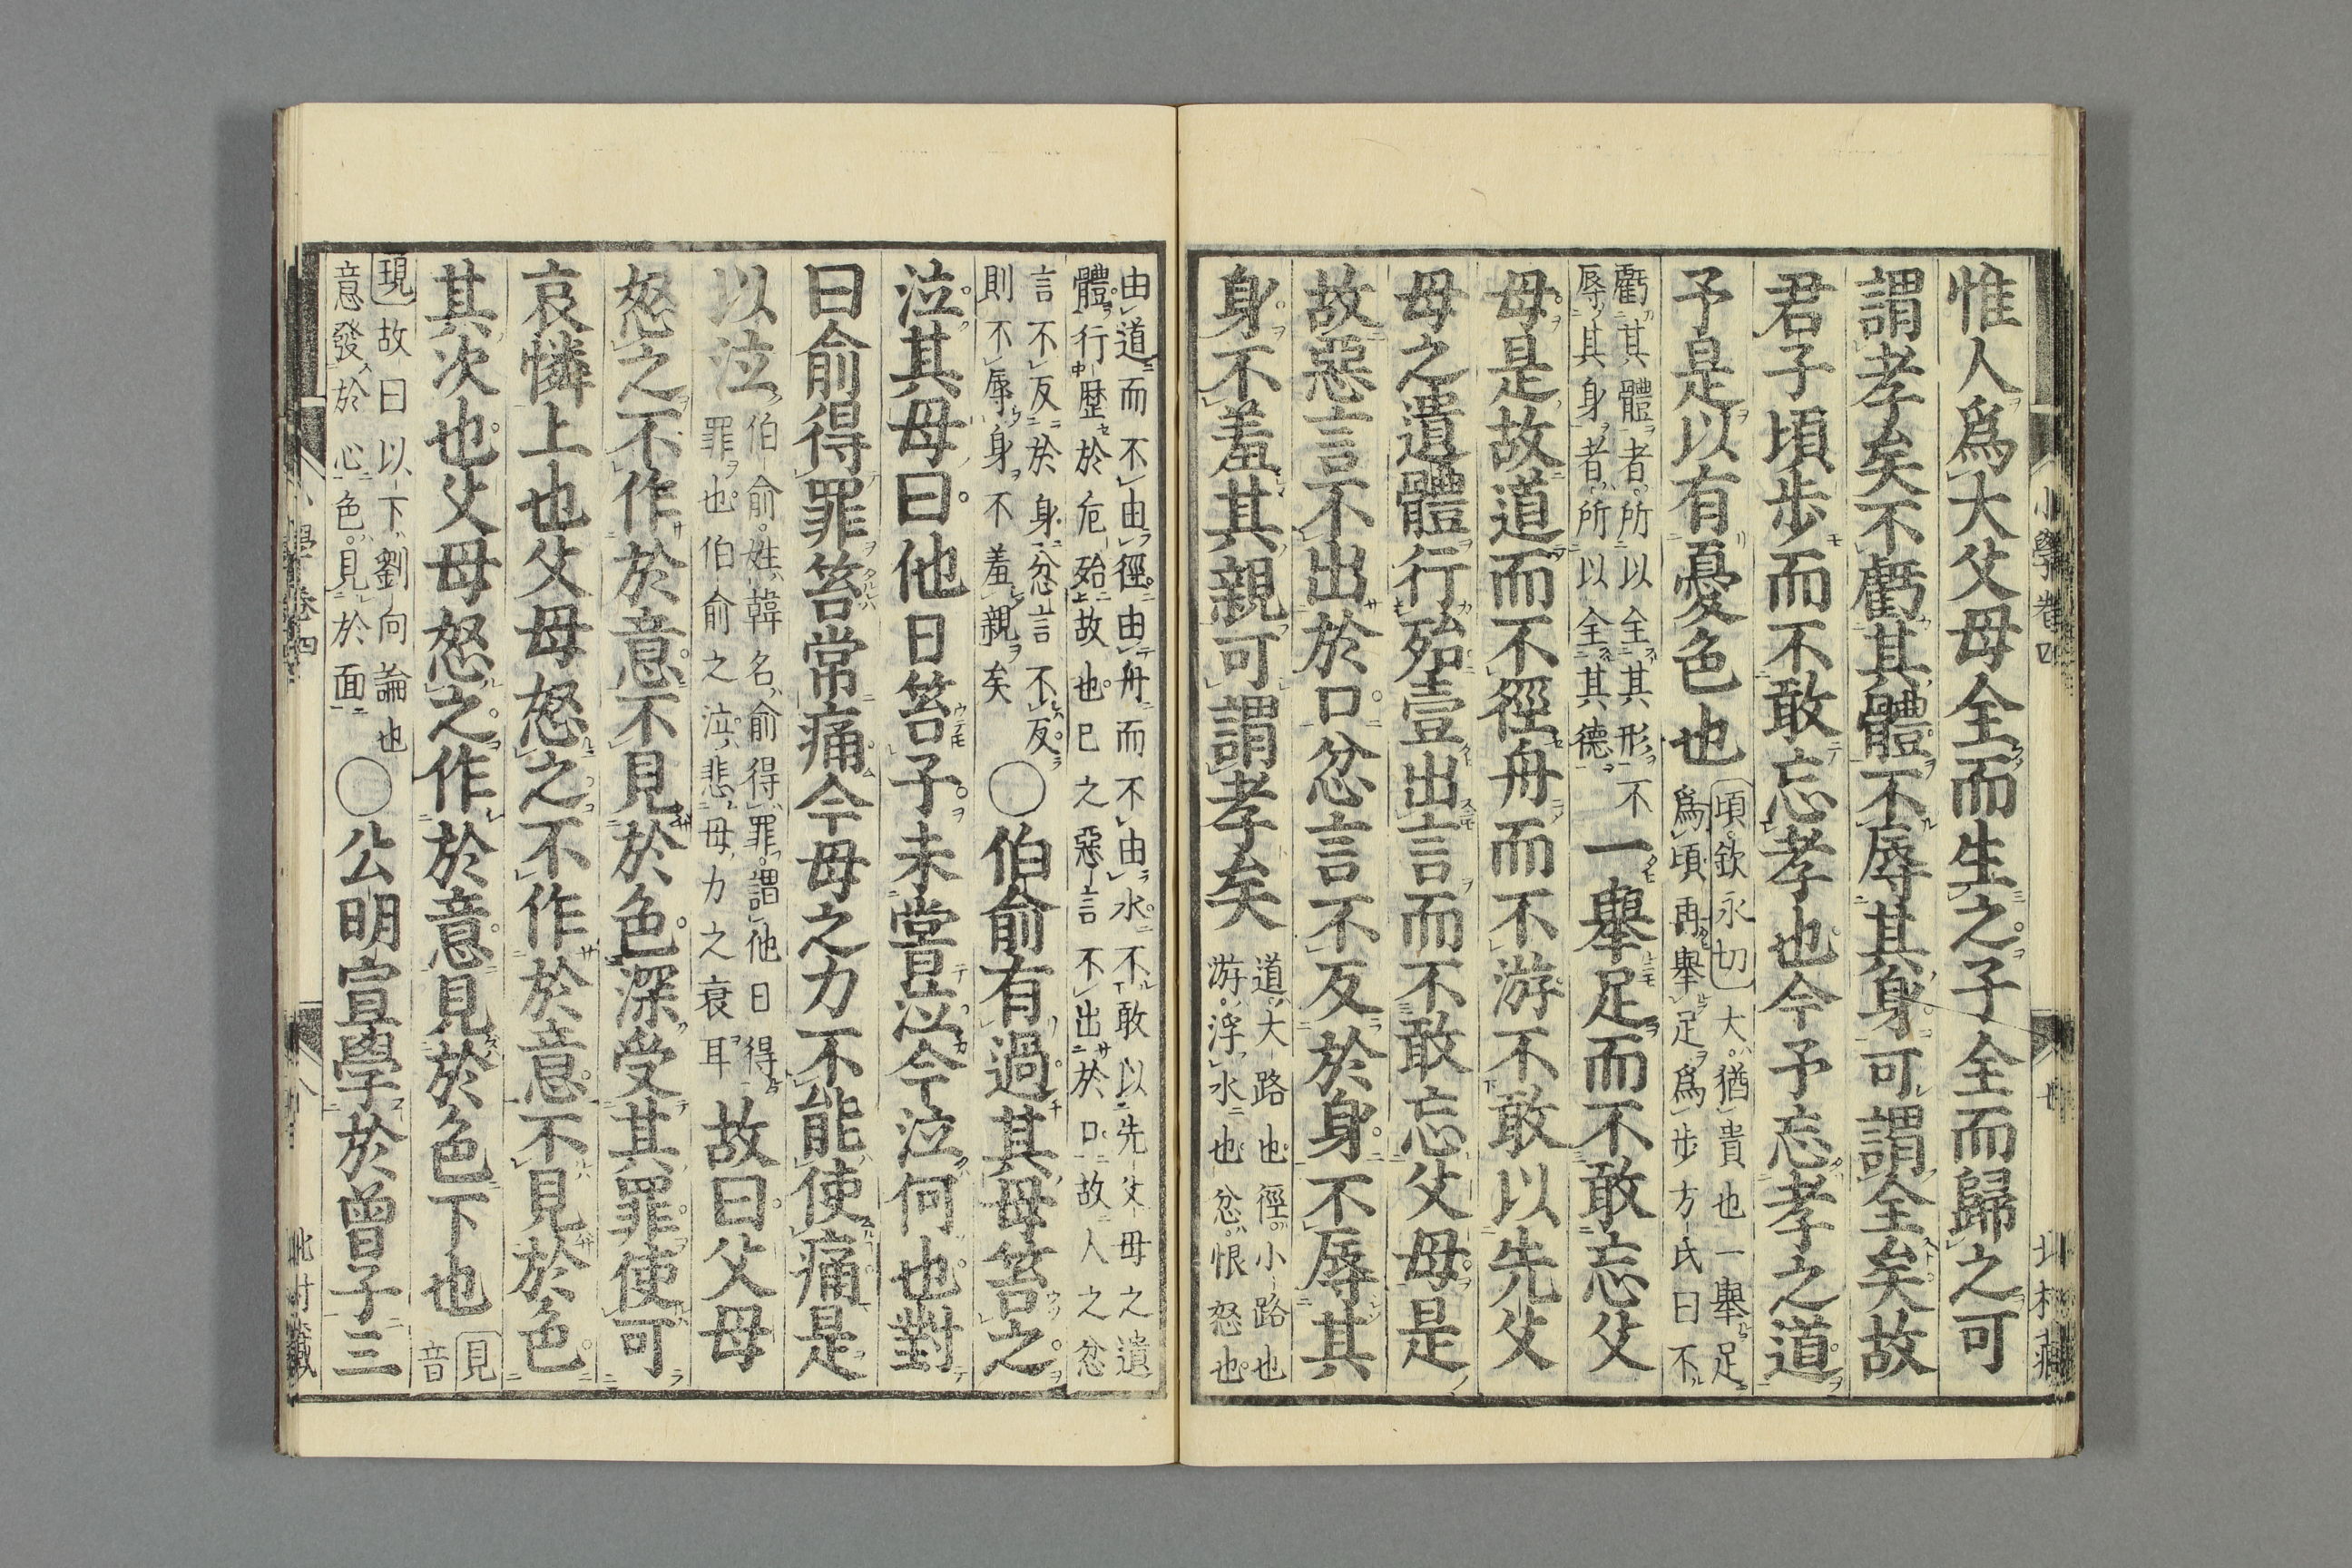 惟人爲大父母全而生之子全而歸之可
謂孝矣不虧其體不辱其身可謂全矣故
君子頃步而不敢忘孝也今予忘孝之道
予是以有憂色也
頃欽永切大猶貴也一舉足
爲頃再舉足爲步方氏曰不
虧其體者所以全其形不
辱其身者所以全其德
一舉足而不敢忘父
母是故道而不徑舟而不游不敢以先父
母之遺體行殆壹出言而不敢忘父母是
故惡言不出於口忿言不反於身不辱其
身不羞其親可謂孝矣
道大路也徑小路也
游浮水也忿恨怒也
由道而不由徑由舟而不由水不敢以先父母之遺
體行歷於危殆故也已之惡言不出於口故人之忿
言不反於身忿言不反
則不辱身不羞親矣
○伯俞有過其母笞之
泣其母曰他日笞子未嘗泣今泣何也對
曰俞得罪笞常痛今母之力不能使痛是
以泣
伯俞姓韓名俞得罪謂他日得
罪也伯俞之泣悲母力之衰耳
故曰父母
怒之不作於意不見於色深受其罪使可
哀憐上也父母怒之不作於意不見於色
其次也父母怒之作於意見於色下也
見
音
現故曰以下劉向論也
意發於心色見於面
○公明宣學於曾子三
小學卷四
小學卷四
北村藏